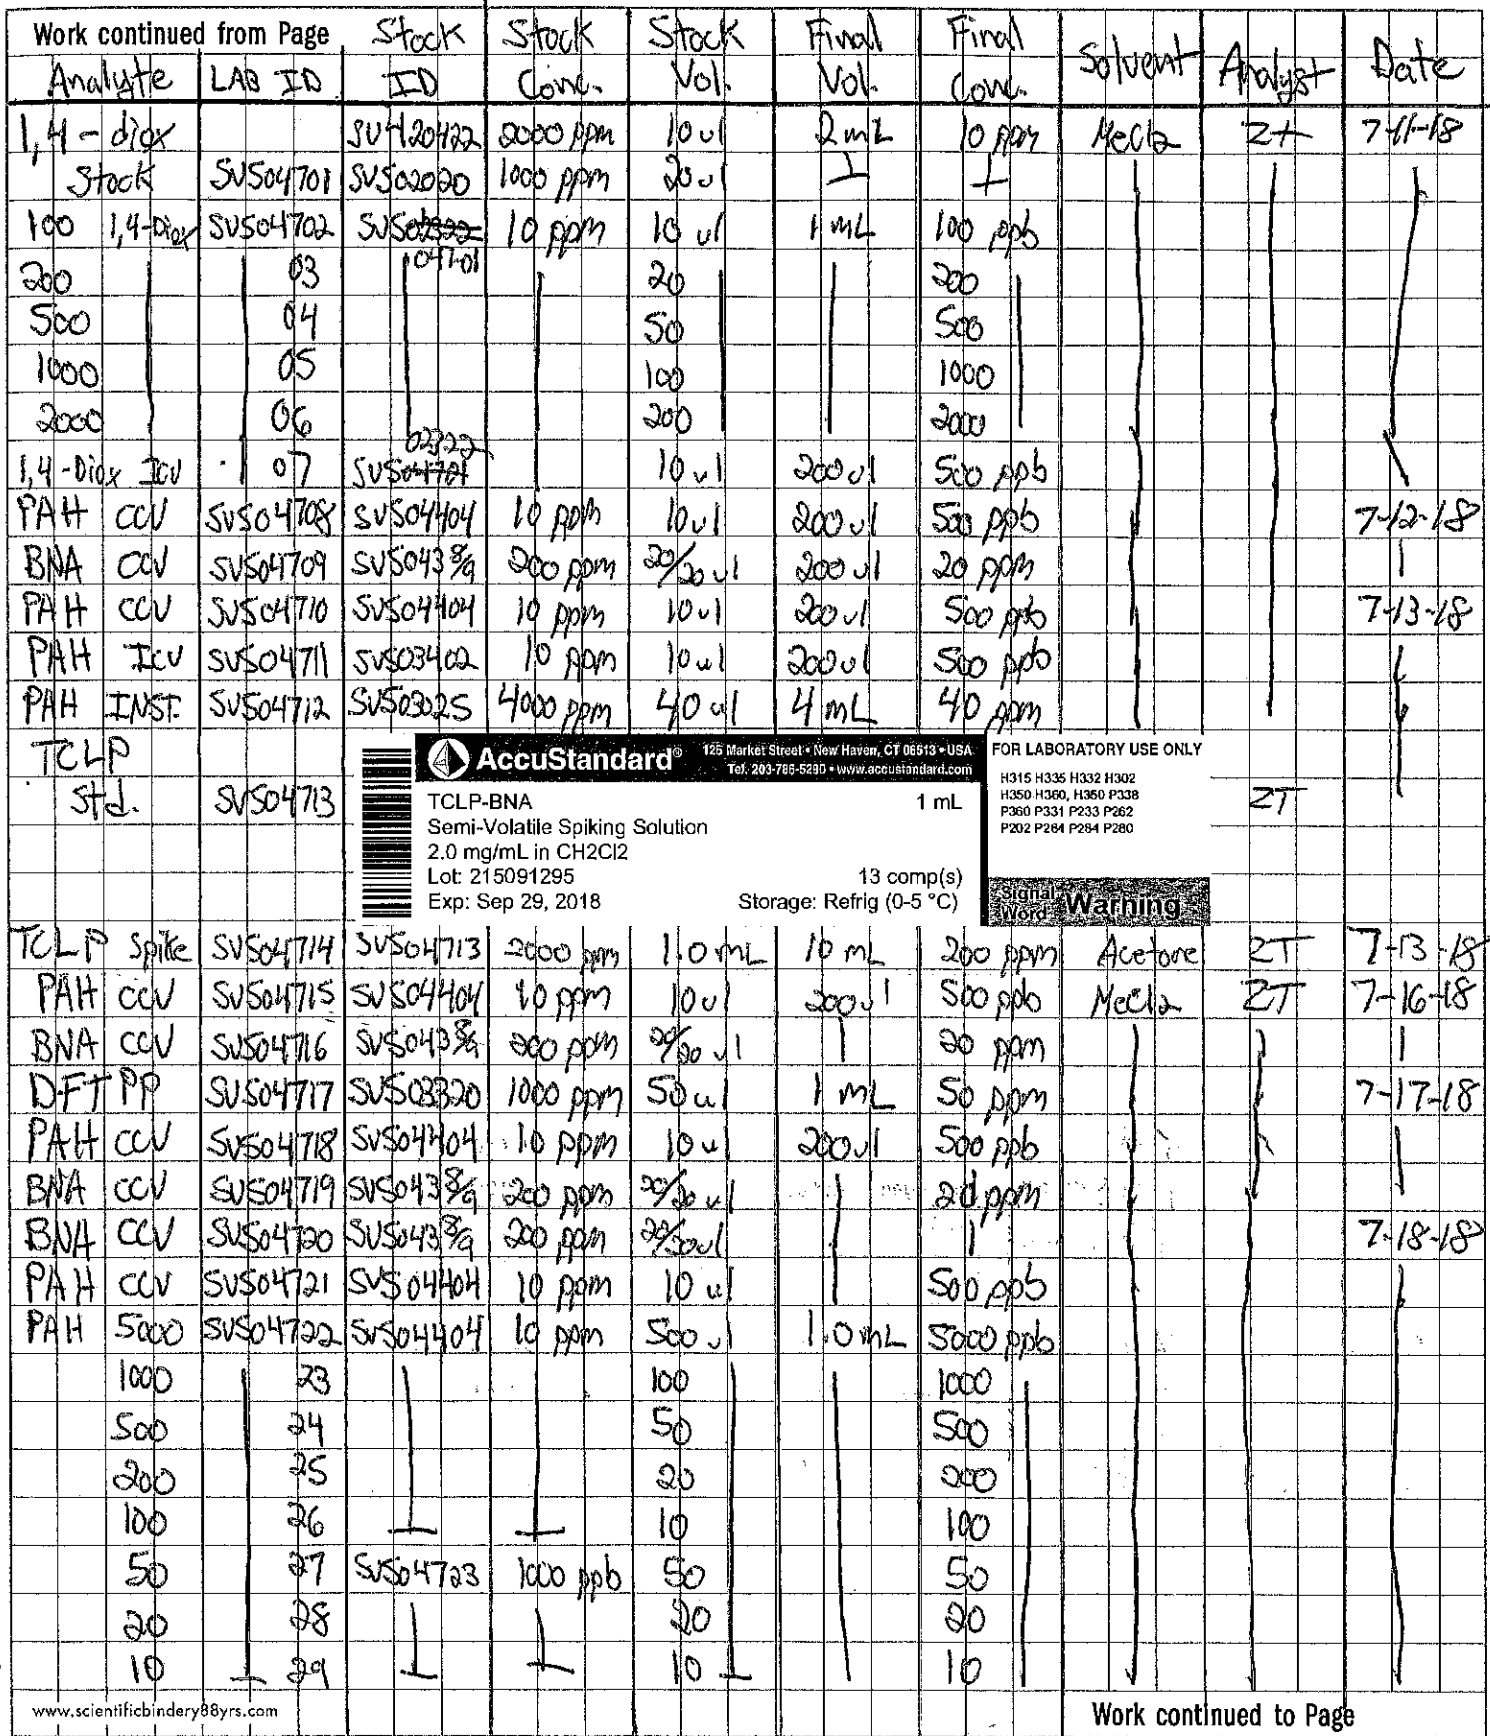 Work continued from Page Stock Stock Stock Final Final Solvent Analyst Date
Analyte LAB ID ID Conc. Vol. Vol. Conc.
1,4-diox SV420422 2000 ppm 10 ul 2 mL 10 ppm MeCl2 ZT 7-11-18
Stock SVS04701 SVS02020 1000 ppm 20 ul
100 1,4-Diox SVS04702 SVS0 10 ppm 10 ul 1 mL 100 ppb
047-01
200 03 20 200
500 04 50 500
1000 05 100 1000
2000 06 200 2000
02322
1,4-Diox ICV 07 SVS04701 10 ul 200 ul 500 ppb
PAH CCV SVS04708 SVS04404 10 ppm 10 ul 200 ul 500 ppb 7-12-18
BNA CCV SVS04709 SVS043 8/9 200 ppm 20/20 ul 200 ul 20 ppm
PAH CCV SVS04710 SVS04404 10 ppm 10 ul 200 ul 500 ppb 7-13-18
PAH ICV SVS04711 SVS03402 10 ppm 10 ul 200 ul 500 ppb
PAH INST. SVS04712 SVS03025 4000 ppm 40 ul 4 mL 40 ppm
TCLP
Std. SVS04713 ZT
AccuStandard® 125 Market Street • New Haven, CT 06513 • USA
Tel. 203-786-5290 • www.accustandard.com
TCLP-BNA 1 mL
Semi-Volatile Spiking Solution
2.0 mg/mL in CH2Cl2
Lot: 215091295 13 comp(s)
Exp: Sep 29, 2018 Storage: Refrig (0-5 °C)
FOR LABORATORY USE ONLY
H315 H335 H332 H302
H350 H360, H350 P338
P360 P331 P233 P262
P202 P264 P284 P280
Signal Word Warning
TCLP Spike SVS04714 SVS04713 2000 ppm 1.0 mL 10 mL 200 ppm Acetone ZT 7-13-18
PAH CCV SVS04715 SVS04404 10 ppm 10 ul 200 ul 500 ppb MeCl2 ZT 7-16-18
BNA CCV SVS04716 SVS043 8/9 200 ppm 20/20 ul 20 ppm
DFTPP SVS04717 SVS03320 1000 ppm 50 ul 1 mL 50 ppm 7-17-18
PAH CCV SVS04718 SVS04404 10 ppm 10 ul 200 ul 500 ppb
BNA CCV SVS04719 SVS043 8/9 200 ppm 20/20 ul 20 ppm
BNA CCV SVS04720 SVS043 8/9 200 ppm 20/20 ul 7-18-18
PAH CCV SVS04721 SVS04404 10 ppm 10 ul 500 ppb
PAH 5000 SVS04722 SVS04404 10 ppm 500 ul 1.0 mL 5000 ppb
1000 23 100 1000
500 24 50 500
200 25 20 200
100 26 10 100
50 27 SVS04723 1000 ppb 50 50
20 28 20 20
10 29 10 10
www.scientificbindery88yrs.com Work continued to Page